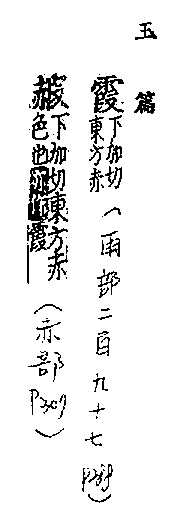 玉篇
霞下加切東方赤(雨部二百九十七
赮下加切東方赤色也霞(赤部